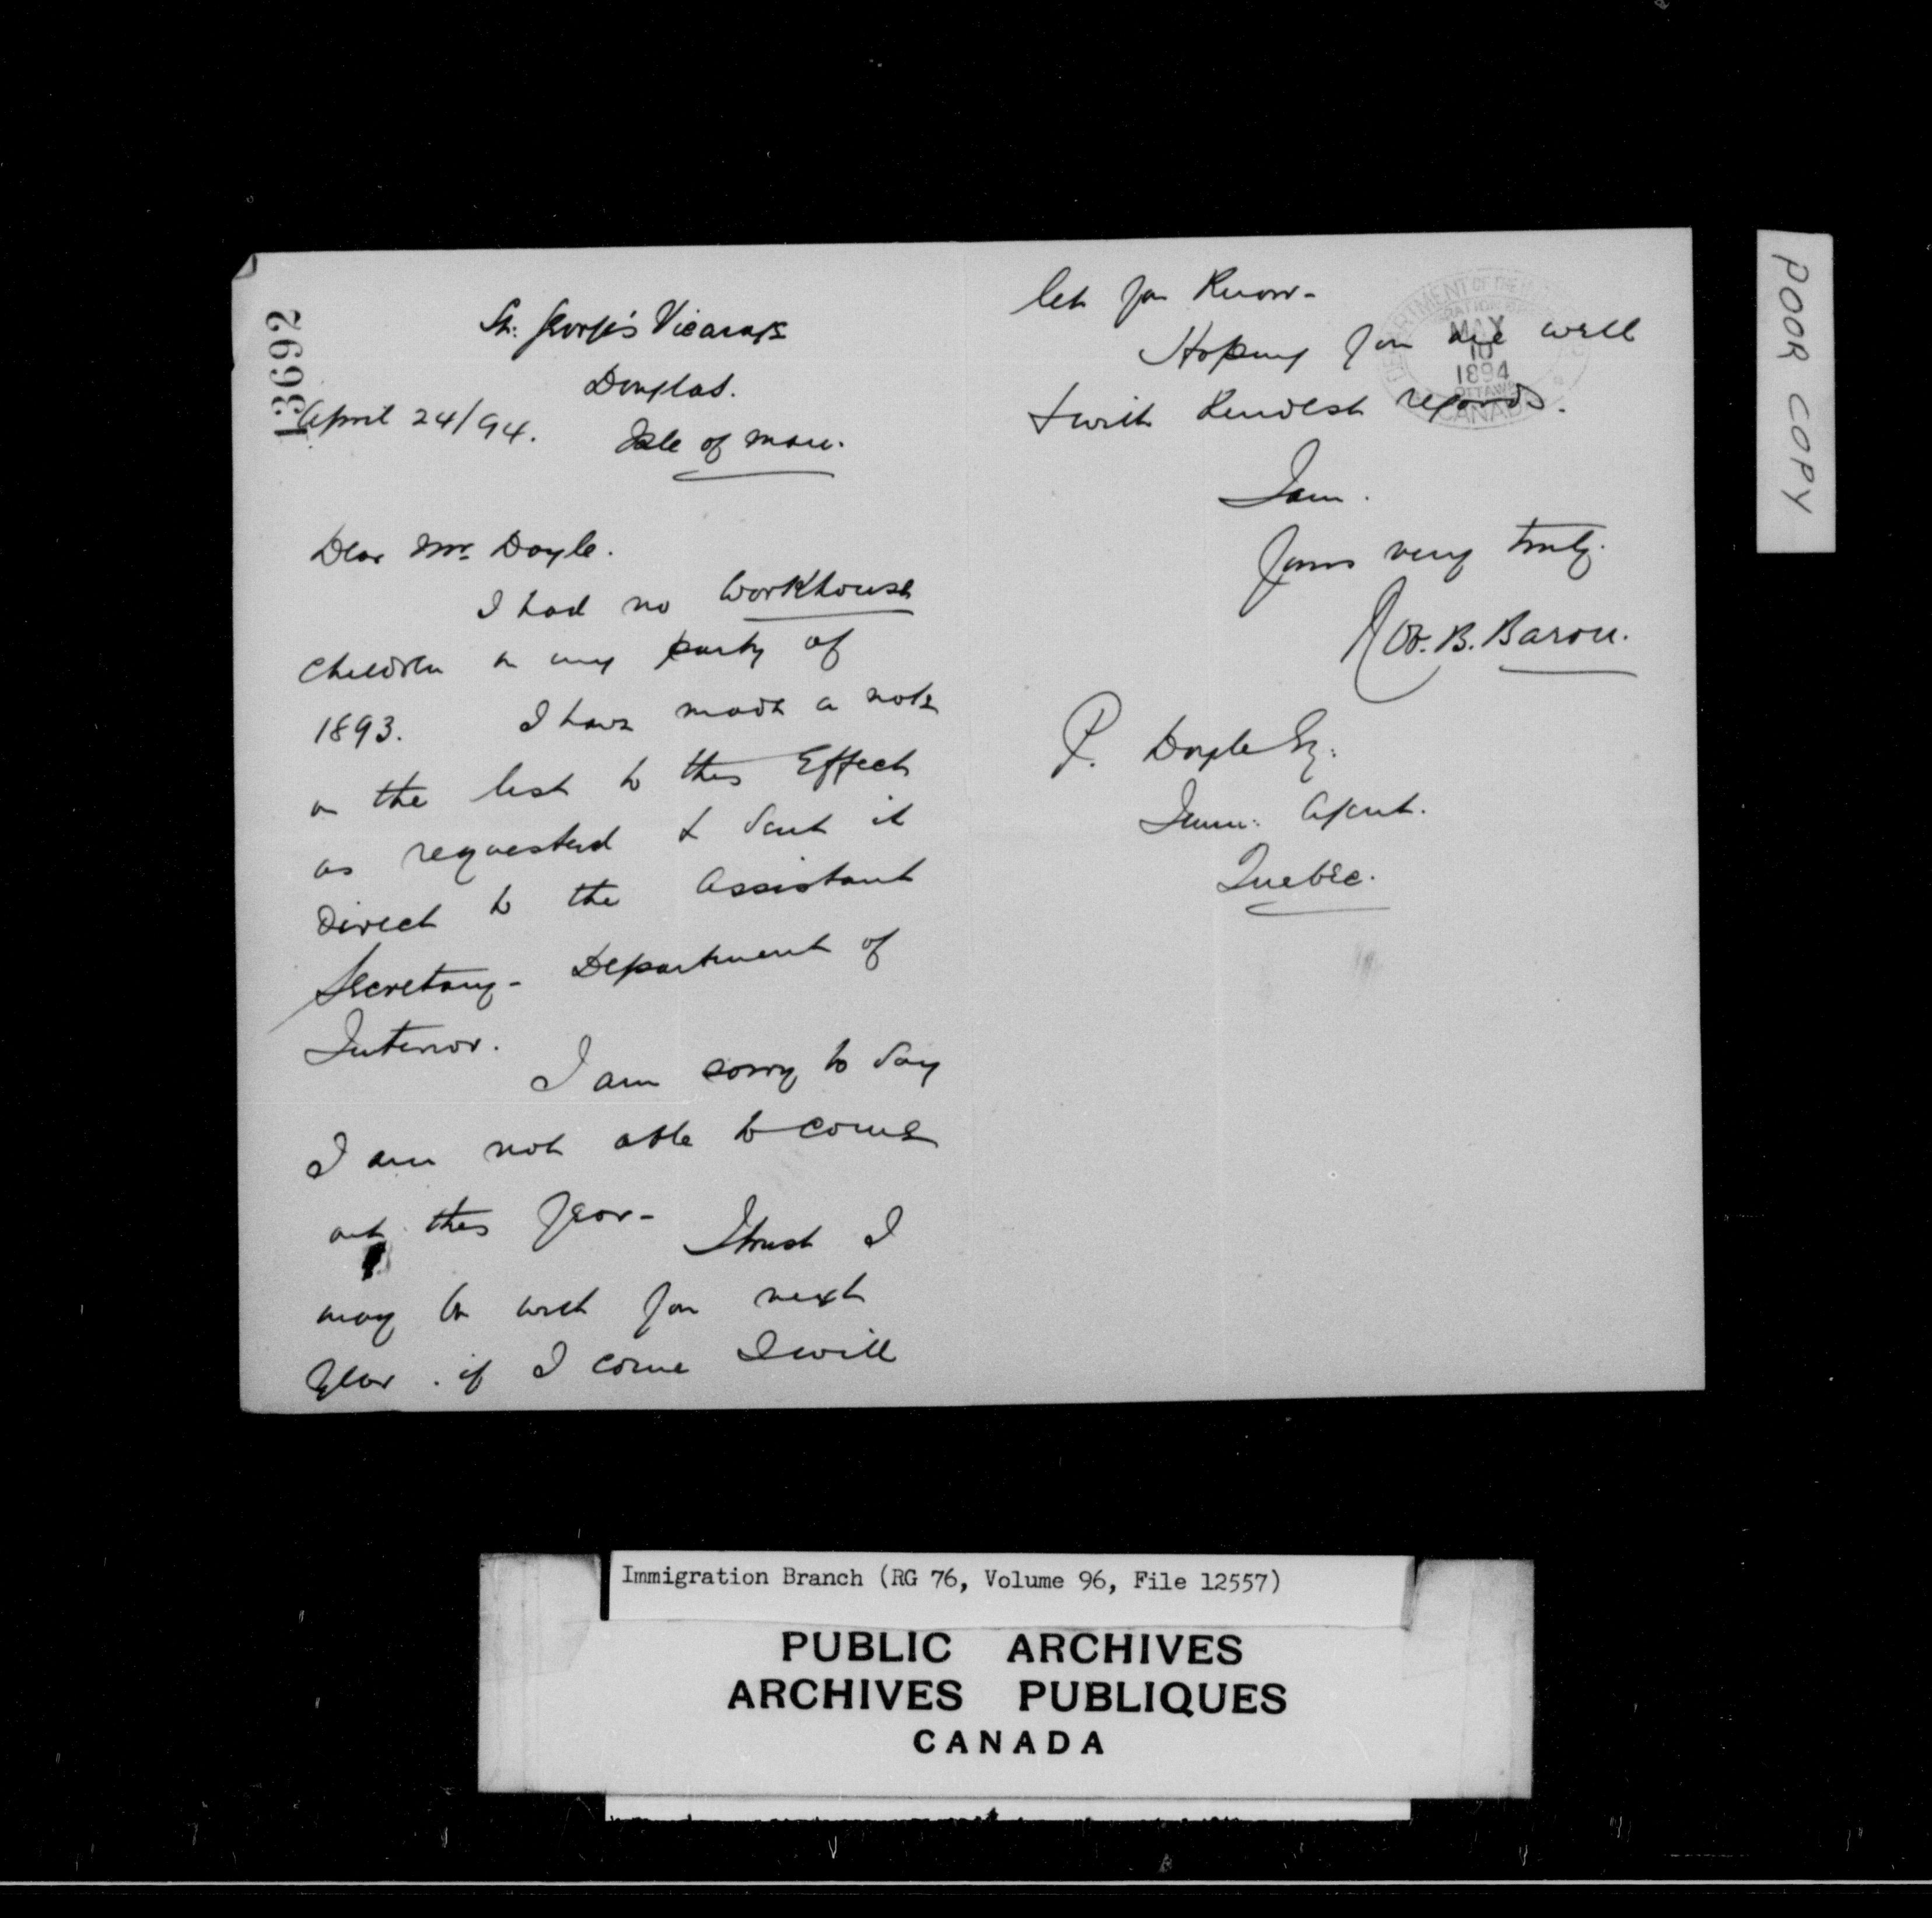 13692
St: George's Vicarage
Douglas.
April 24/94.
Isle of Man.
Dear Mr. Doyle.
I had no Workhouse
Children in my party of
1893. I have made a note
on the list to this Effect
as requested & sent it
Direct to the Assistant
Secretary - Department of
Interior.
I am sorry to say
I am not able to come
out this year - I trust I
may be with you next
year . if I come I will
let you know -
Hoping you are well
& with kindest regards.
I am.
Yours very truly.
Rob. B. Baron.
P. Doyle Esq:
Imm: Agent.
Quebec.
DEPARTMENT OF THE
MAY
10
1894
OTTAWA
CANADA
POOR COPY
Immigration Branch (RG 76, Volume 96, File 12557)
PUBLIC ARCHIVES
ARCHIVES PUBLIQUES
CANADA